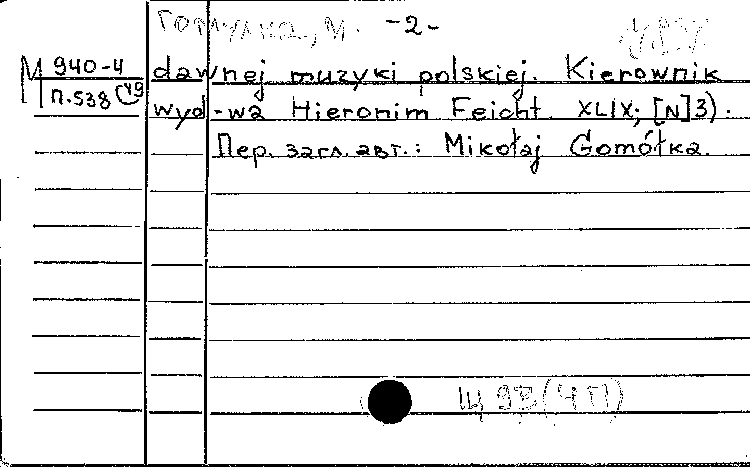 Гомулка, М. -2-
М 940-4
П.538 (49
dawnej muzyki polskiej. Kierownik
wyd-wa Hieronim Feicht. XLIX; [N]3).
Пер. загл. авт.: Mikołaj Gomółka.
Щ 9